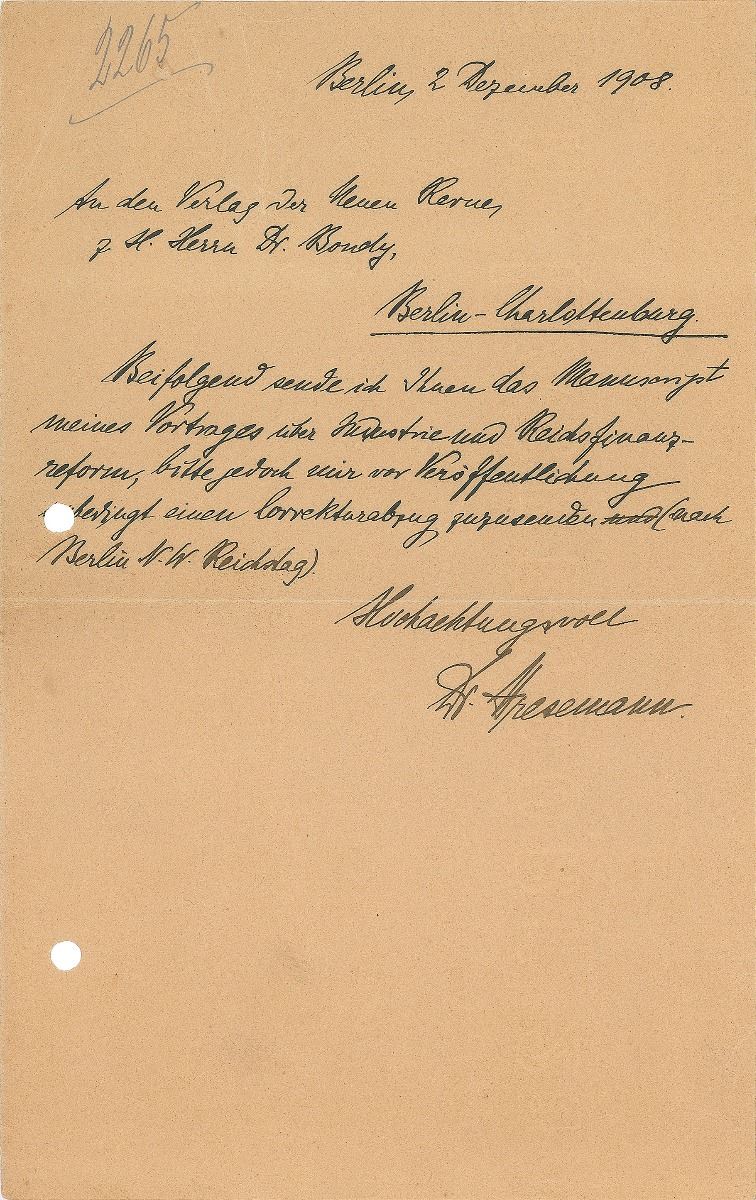 2265
Berlin, 2 Dezember 1908.
An den Verlag der Neuen Revue,
z. H. Herrn Dr. Bondy,
Berlin-Charlottenburg.
Beifolgend sende ich Ihnen das Manuscript
meines Vortrages über Industrie und Reichsfinanz-
reform, bitte jedoch mir vor Veröffentlichung
unbedingt einen Correkturabzug zuzusenden und (nach
Berlin N. W. Reichstag).
Hochachtungsvoll
Dr. Stresemann.